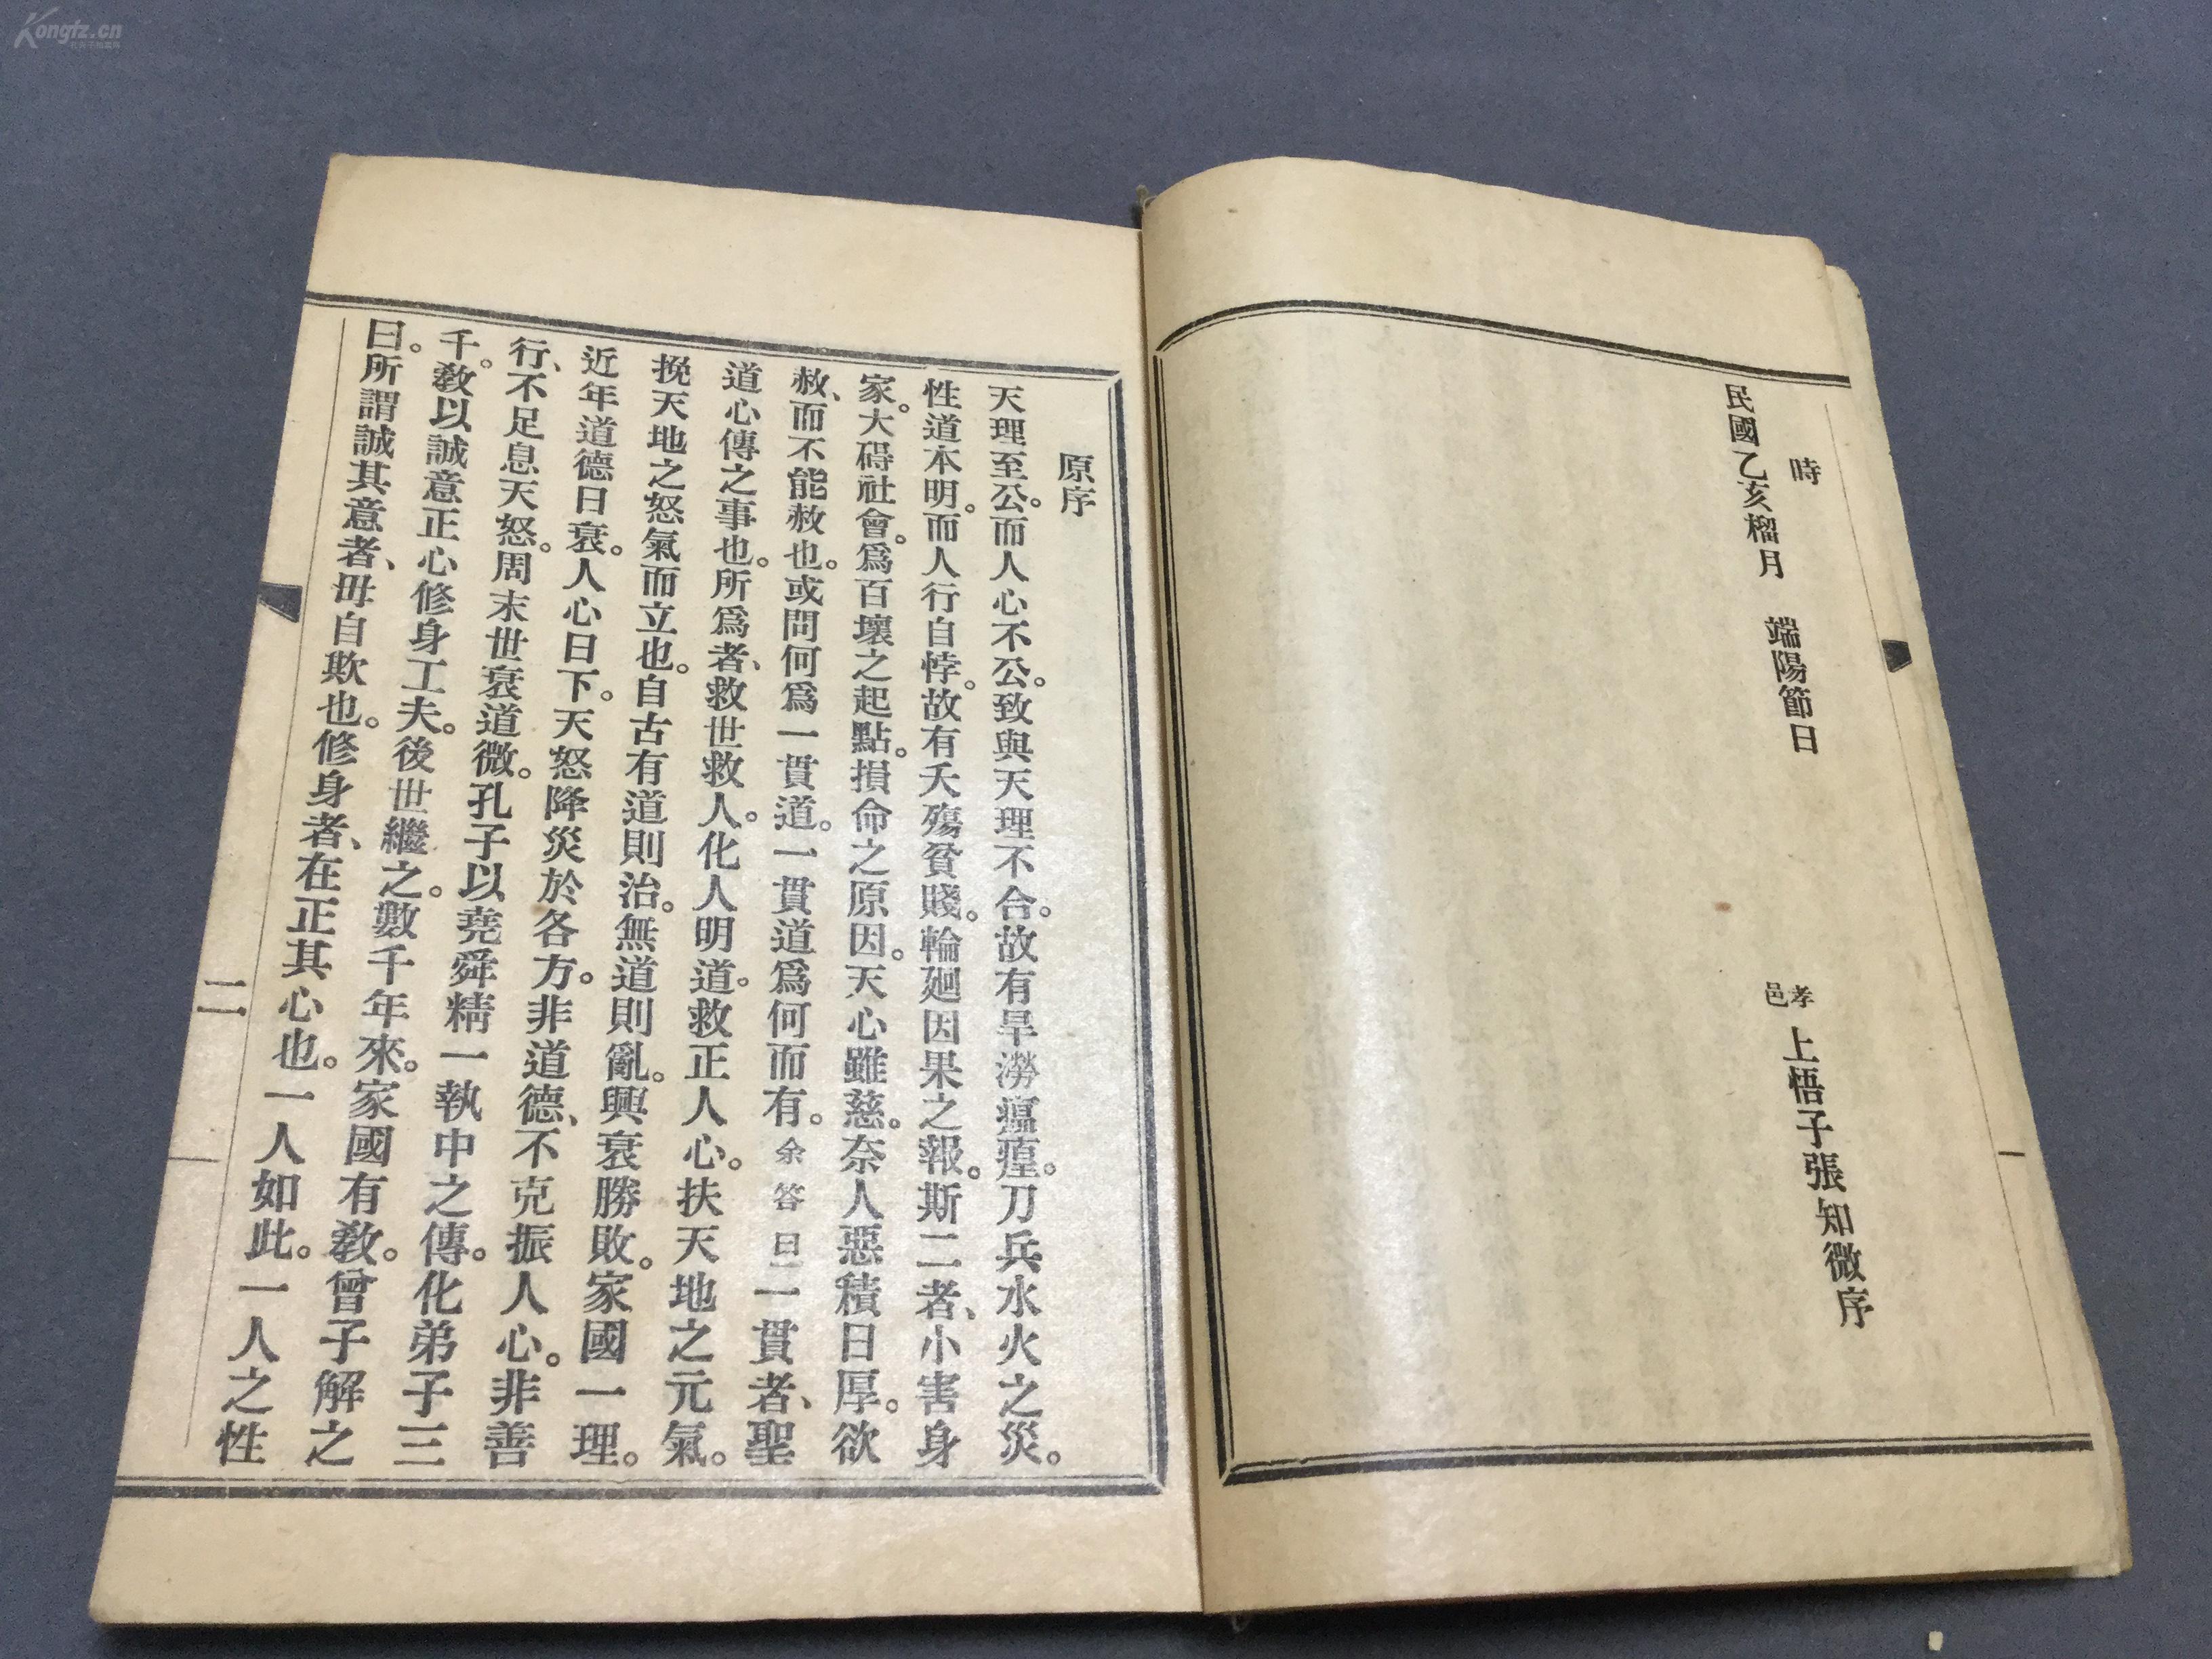 Kongfz.cn
時
民國乙亥榴月　端陽節日
孝邑上悟子張知微序
一
原序
天理至公。而人心不公。致與天理不合。故有旱澇瘟瘟。刀兵水火之災。
性道本明。而人行自悖。故有夭殤貧賤。輪廻因果之報。斯二者、小害身
家。大碍社會。爲百壞之起點。損命之原因。天心雖慈。奈人惡積日厚。欲
赦、而不能赦也。或問何爲一貫道。一貫道爲何而有。余答曰一貫者、聖
道心傳之事也。所爲者、救世救人。化人明道。救正人心。扶天地之元氣。
挽天地之怒氣而立也。自古有道則治。無道則亂。興衰勝敗。家國一理。
近年道德日衰。人心日下。天怒降災於各方。非道德、不克振人心。非善
行、不足息天怒。周末世衰道微。孔子以堯舜精一執中之傳。化弟子三
千。敎以誠意正心修身工夫。後世繼之。數千年來。家國有敎。曾子解之
曰。所謂誠其意者、毋自欺也。修身者、在正其心也。一人如此。一人之性
二